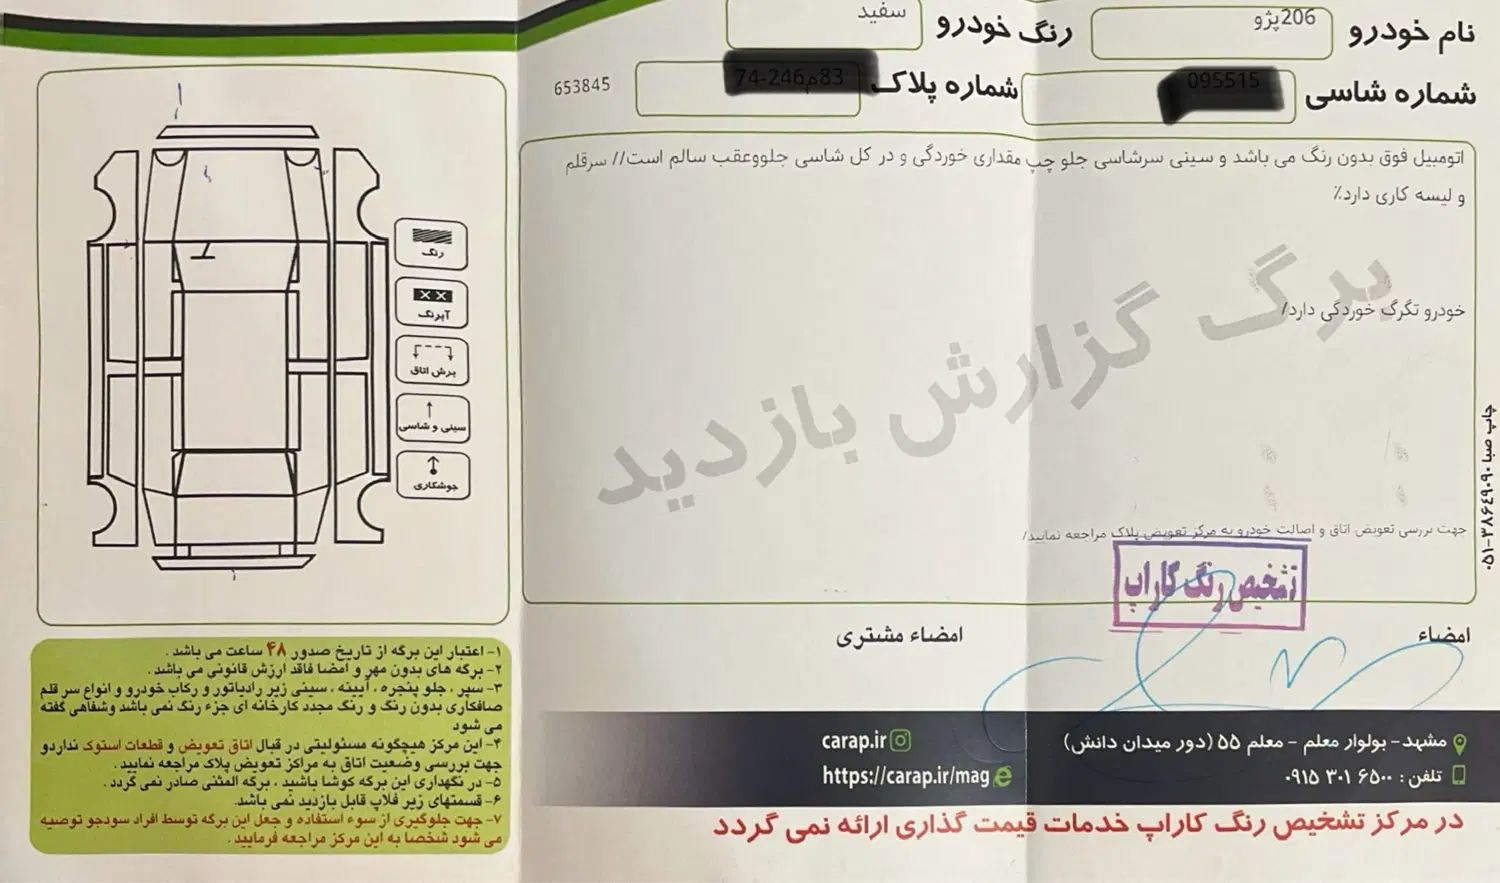 نام خودرو
206پژو
رنگ خودرو
سفید
شماره شاسی
095515
شماره پلاک
83م246-74
653845
اتومبیل فوق بدون رنگ می باشد و سینی سرشاسی جلو چپ مقداری خوردگی و در کل شاسی جلووعقب سالم است// سرقلم
و لیسه کاری دارد٪
خودرو تگرگ خوردگی دارد/
برگ گزارش بازدید
جهت بررسی تعویض اتاق و اصالت خودرو به مرکز تعویض پلاک مراجعه نمایید/
تشخیص رنگ کاراپ
امضاء
امضاء مشتری
مشهد- بولوار معلم - معلم ۵۵ (دور میدان دانش)
تلفن : ۶۵۰۰ ۳۰۱ ۰۹۱۵
carap.ir
https://carap.ir/mag
در مرکز تشخیص رنگ کاراپ خدمات قیمت گذاری ارائه نمی گردد
چاپ صبا ۳۸۶۴۹۰۹۰-۰۵۱
رنگ
آبرنگ
برش اتاق
سینی و شاسی
جوشکاری
۱- اعتبار این برگه از تاریخ صدور ۴۸ ساعت می باشد .
۲- برگه های بدون مهر و امضا فاقد ارزش قانونی می باشد .
۳- سپر ، جلو پنجره ، آیینه ، سینی زیر رادیاتور و رکاب خودرو و انواع سر قلم
صافکاری بدون رنگ و رنگ مجدد کارخانه ای جزء رنگ نمی باشد وشفاهی گفته
می شود
۴- این مرکز هیچگونه مسئولیتی در قبال اتاق تعویض و قطعات استوک نداردو
جهت بررسی وضعیت اتاق به مراکز تعویض پلاک مراجعه نمایید .
۵- در نگهداری این برگه کوشا باشید ، برگه المثنی صادر نمی گردد .
۶- قسمتهای زیر فلاپ قابل بازدید نمی باشد.
۷- جهت جلوگیری از سوء استفاده و جعل این برگه توسط افراد سودجو توصیه
می شود شخصاً به این مرکز مراجعه فرمایید .